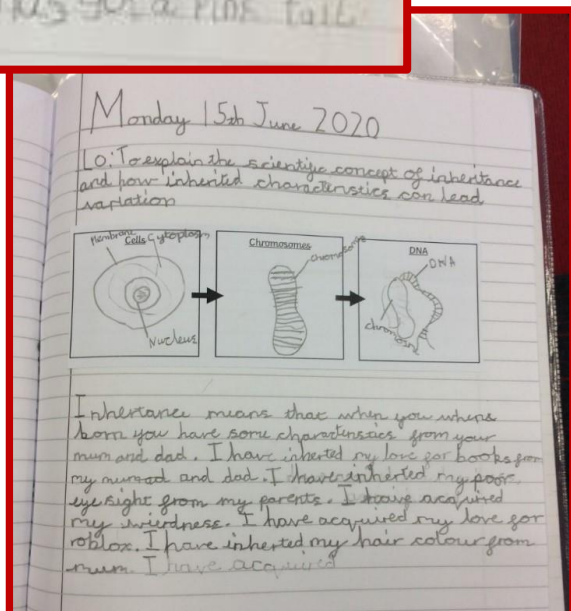 a Pink tail
Monday 15th June 2020
Lo: To explain the scientific concept of inheritance
and how inherited characteristics can lead
variation
Membrane Cells Cytoplasm
Nucleus
Chromosomes
chromosome
DNA
DNA
chromosome
Inhertance means that when you whens
born you have some characteristics from your
mum and dad. I have inherted my love for books from
my mumad and dad. I have inherted my poor
eye sight from my parents. I have acquired
my wierdness. I have acquired my love for
roblox. I have inherted my hair colour from
mum. I have acquired